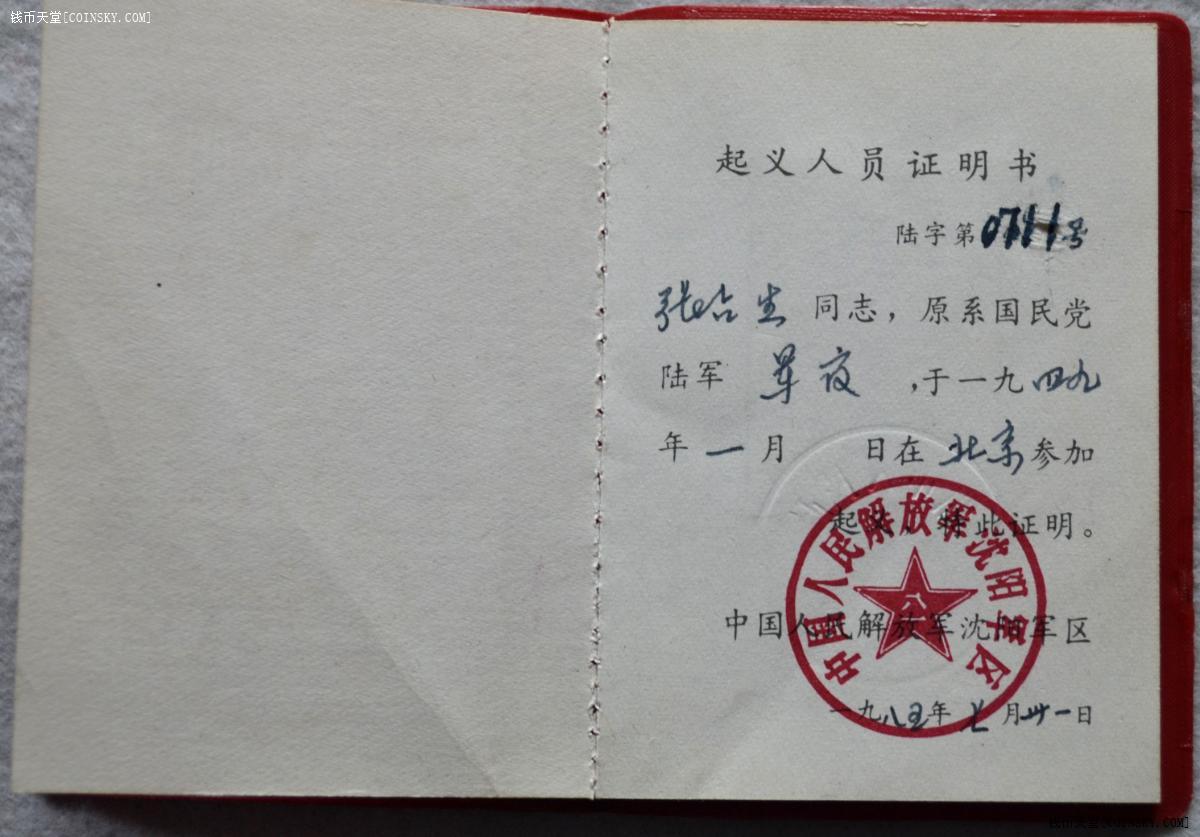 钱币天堂[COINSKY.COM]
起义人员证明书
陆字第0711号
张合生 同志，原系国民党
陆军 军医 ，于一九四九
年一月 日在北京参加
起义，特此证明。
中国人民解放军沈阳军区
中国人民解放军沈阳军区
八一
一九八五年七月卅一日
钱币天堂[COINSKY.COM]